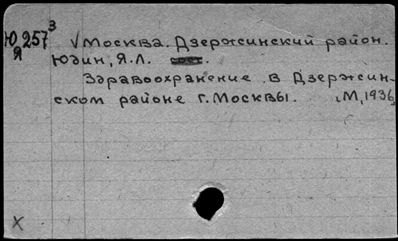 Ю 257 3
Я
√ Москва. Дзержинский район.
Юдин, Я.Л.
Здравоохранение в Дзержин-
ском районе г. Москвы. М, 1936
X